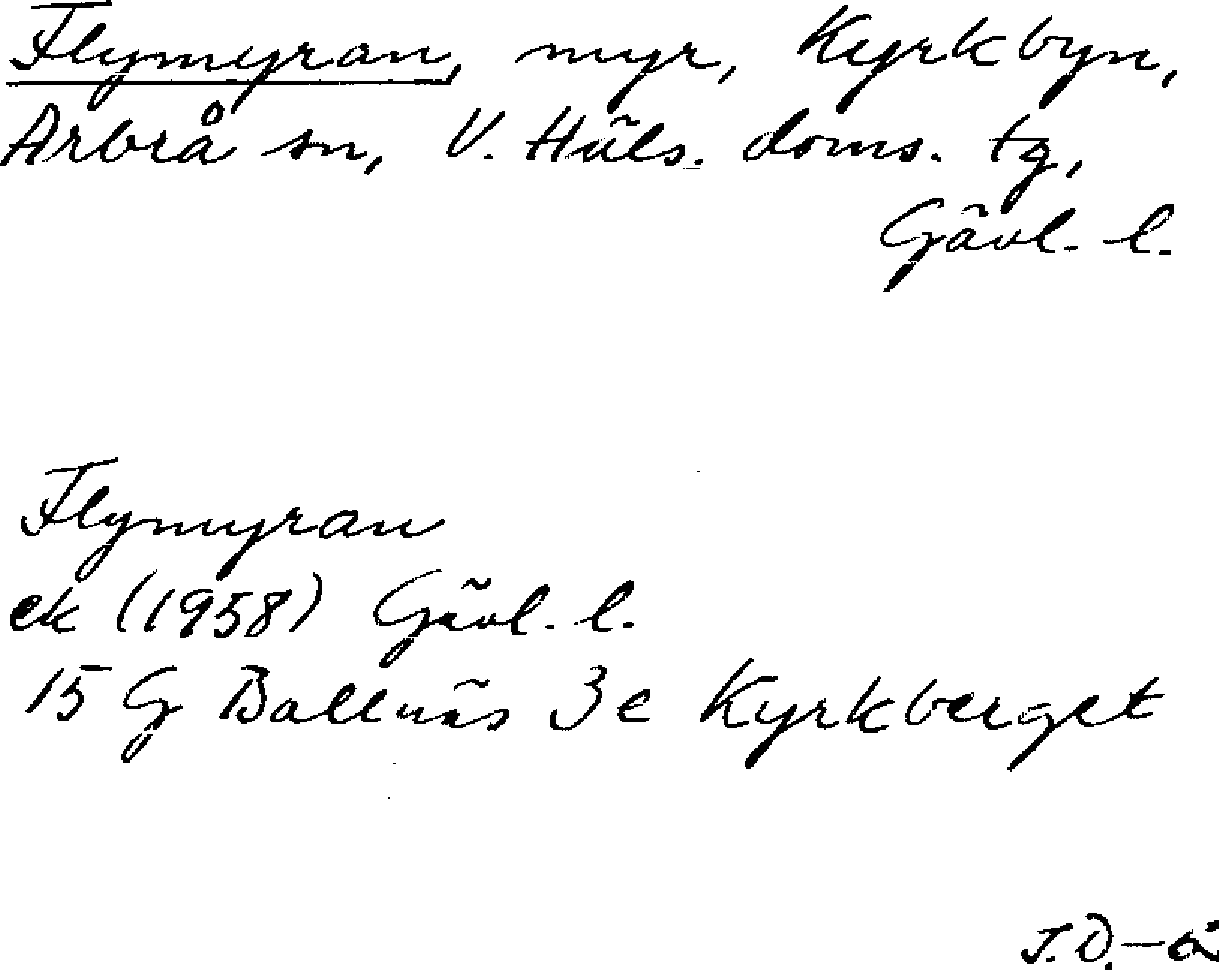 Flymyran, myr, Kyrkbyn,
Arbrå sn, V. Häls. doms. tg,
Gävl. l.
Flymyran
ek (1958) Gävl. l.
15 G Bollnäs 3e Kyrkberget